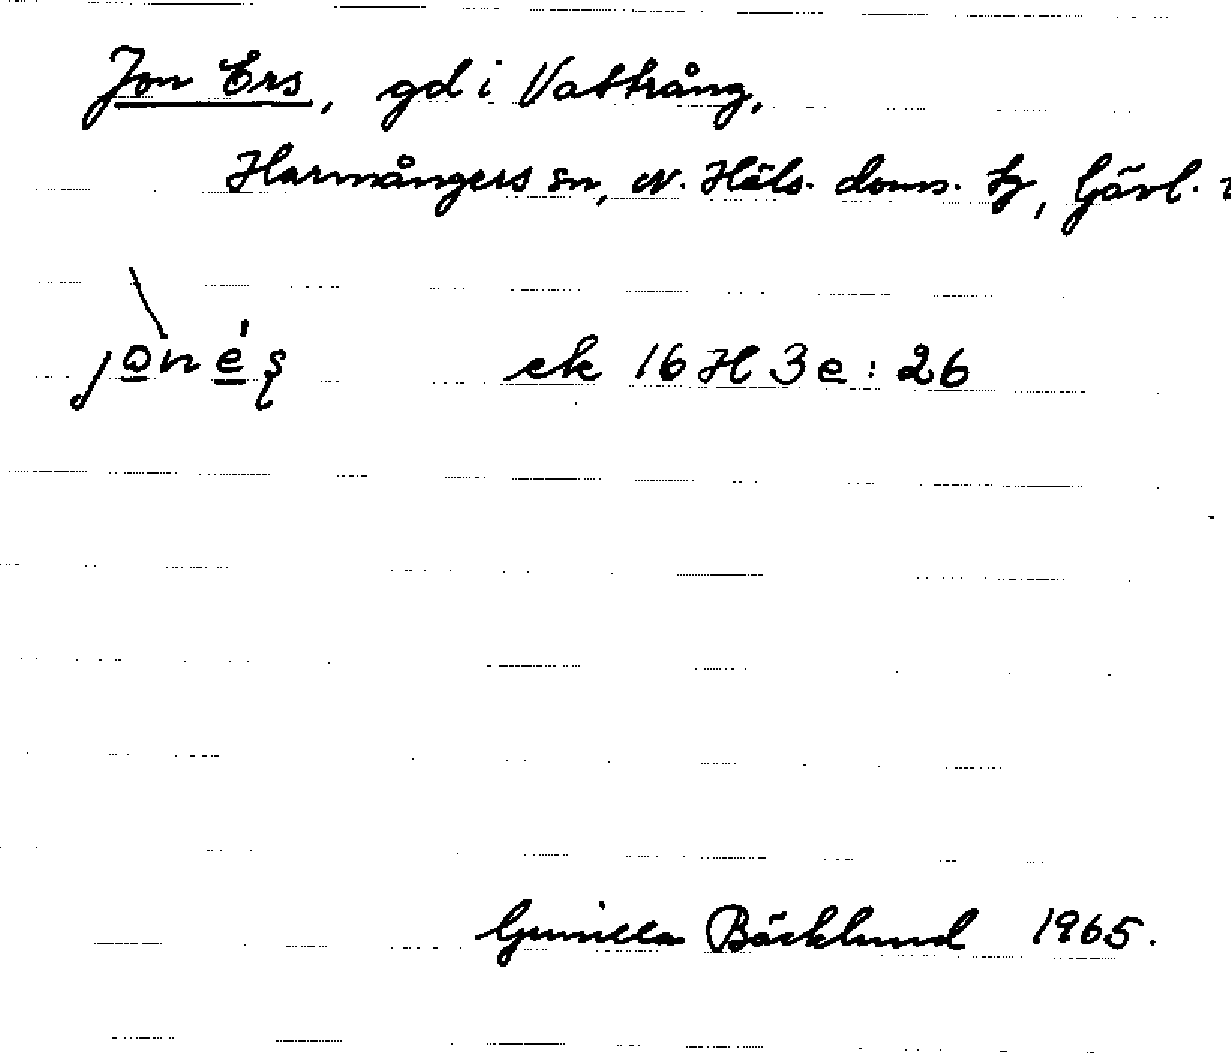 Jon Ers, gd i Vattrång,
Harmångers sn, N. Häls. doms. tg, Gävl.
ek 16H3e:26
Gunilla Bäcklund 1965.